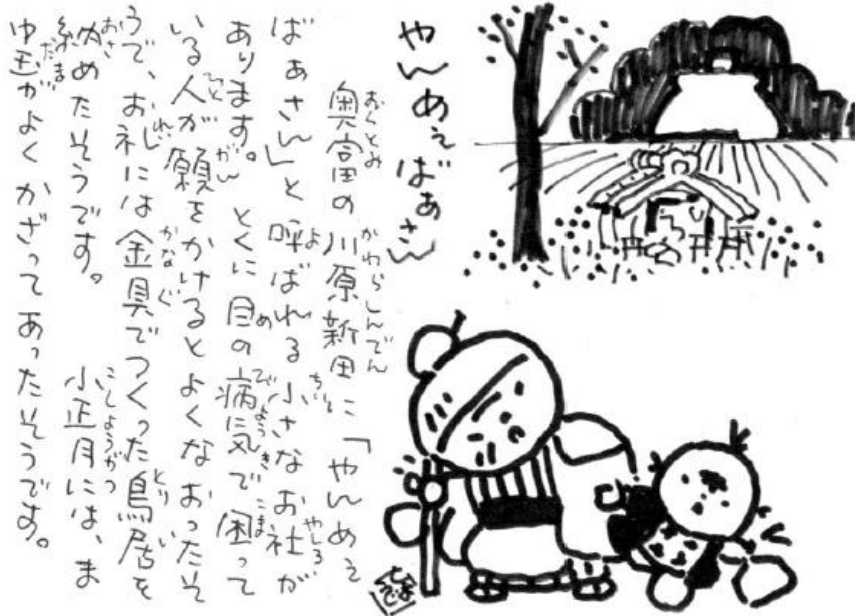 やんめぇばぁさん
奥富の川原新田に「やんめぇ
ばぁさん」と呼ばれる小さなお社が
あります。とくに目の病気で困って
いる人が願をかけるとよくなおったそ
うで、お礼には金具でつくった鳥居を
納めたそうです。 小正月には、ま
ゆ玉がよくかざってあったそうです。